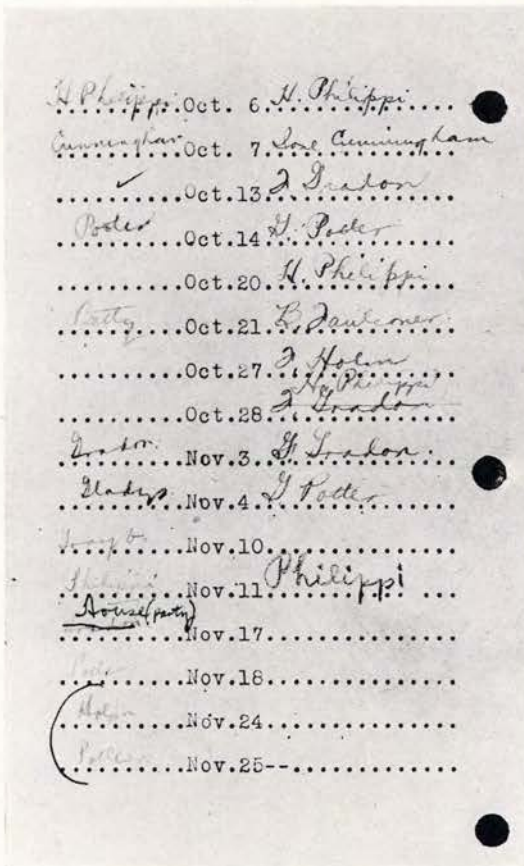 H. Philippi Oct. 6. H. Philippi
Cunningham Oct. 7 Cunningham
✓ Oct.13 Gradon
Potter Oct.14 G. Potter
Oct.20 H. Philippi
Betty Oct.21 B. Faulconer
Oct.27 Holm
H. Philippi
Oct.28 Gradon
Gradon Nov. 3. G. Gradon
Gladys Nov. 4. G Potter
Nov.10
Philippi Nov.11 Philippi
House (party)
Nov.17
Nov.18
Holm Nov.24
Potter Nov.25--